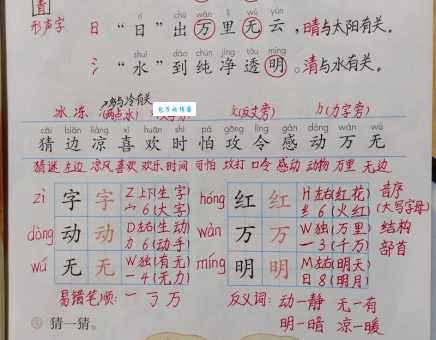 青
rì chū wàn lǐ wú yún
形声字 日 “日”出万里无云，晴与太阳有关。
shuǐ dào chún jìng tòu míng
氵 “水”到纯净透明。清与水有关。
冫与冷有关
冰 冻 (两点水) 攵(反文旁) 力(力字旁)
cāi biān liáng xǐ huān shí pà gōng lìng gǎn dòng wàn wú
猜 边 凉 喜 欢 时 怕 攻 令 感 动 万 无
猜谜 左边 凉风 喜欢 欢乐 时间 可怕 攻打 口令 感动 动物 万里 无边
zì 字 字 Z 上下(生字) hóng 红 红 H 左右(红花) 音序
宀 6 (大字) 纟 6 (火红) (大写字母)
dòng 动 动 D 左右(生动) wàn 万 万 W 独(万里) 结构
力 6 (动手) 一 3 (千万) 部首
wú 无 无 W 独(有无) míng 明 明 M 左右(明天)
一 4 (无力) 日 8 (明月)
易错笔顺：一 丆 万 反义词：动—静 无—有
猜一猜。 明—暗 凉—暖